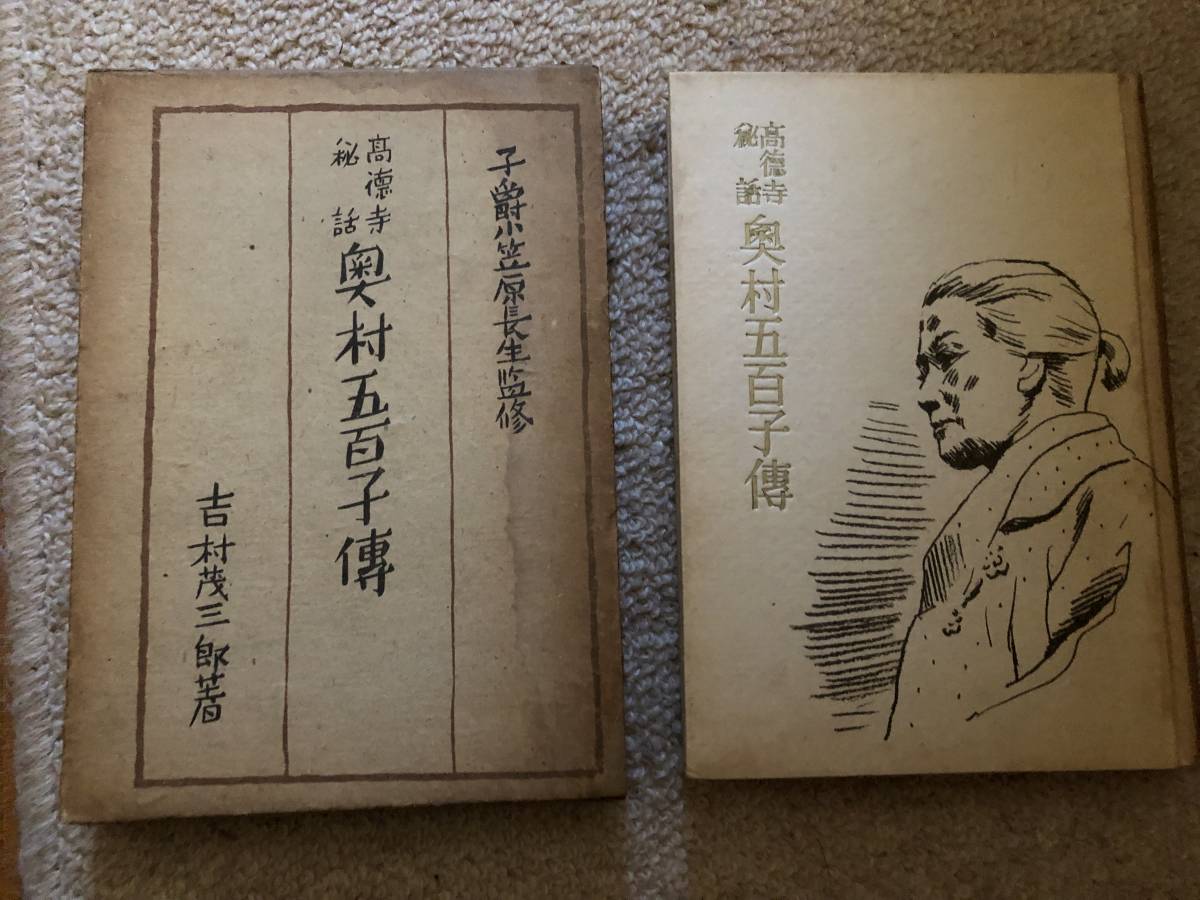 子爵小笠原長生監修
高德寺
秘話
奥村五百子傳
吉村茂三郎著
高德寺
秘話
奥村五百子傳